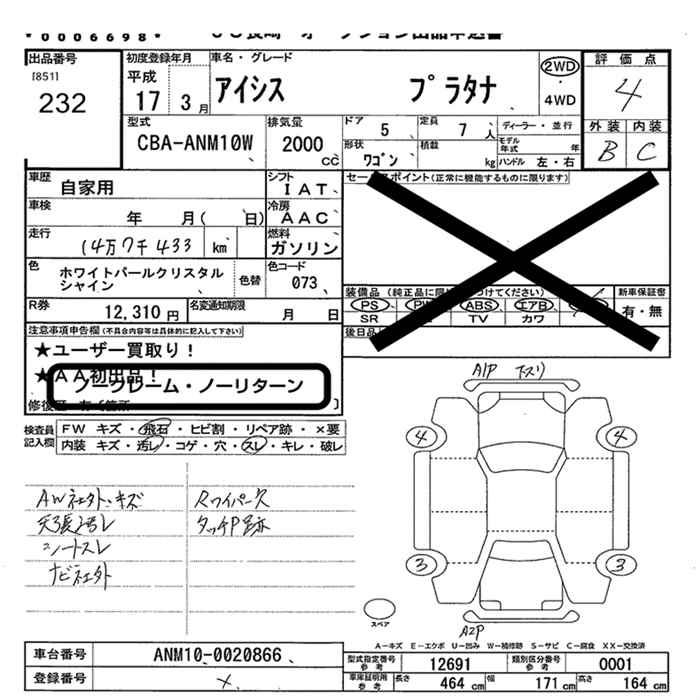 *0006698*
出品番号
[851]
232
初度登録年月
平成
17 3 月
車名・グレード
アイシス プラタナ
2WD
4WD
評価点
4
外装 内装
B C
型式
CBA-ANM10W
排気量
2000 cc
ドア
5
定員
7 人
形状
ワゴン
積載
kg
ディーラー・並行
モデル年式 年
ハンドル 左・右
車歴
自家用
シフト
IAT
車検
年 月( 日)
冷房
AAC
走行
14万7千433 km
燃料
ガソリン
色
ホワイトパールクリスタルシャイン
色替
色コード
073
R券
12,310円
名変通知期限
月 日
(正常に機能するものに限ります)
装備品
PS
ABS エアB
SR TV カワ
新車保証書
有・無
後日品
注意事項申告欄(不具合内容等は具体的に記入して下さい)
★ユーザー買取り!
★AA初出品!
ノークレーム・ノーリターン
検査員記入欄
FW キズ・飛石・ヒビ割・リペア跡・×要
内装 キズ・汚レ・コゲ・穴・スレ・キレ・破レ
シートスレ
A1P 下スリ
4 4
3 3
A2P
スペア
A-キズ E-エクボ U-凹み W-補修跡 S-サビ C-腐食 XX-交換済
車台番号
ANM10-0020866
登録番号
×
型式指定番号 参考
12691
類別区分番号 参考
0001
車庫証明用 参考
長さ 464 cm
幅 171 cm
高さ 164 cm